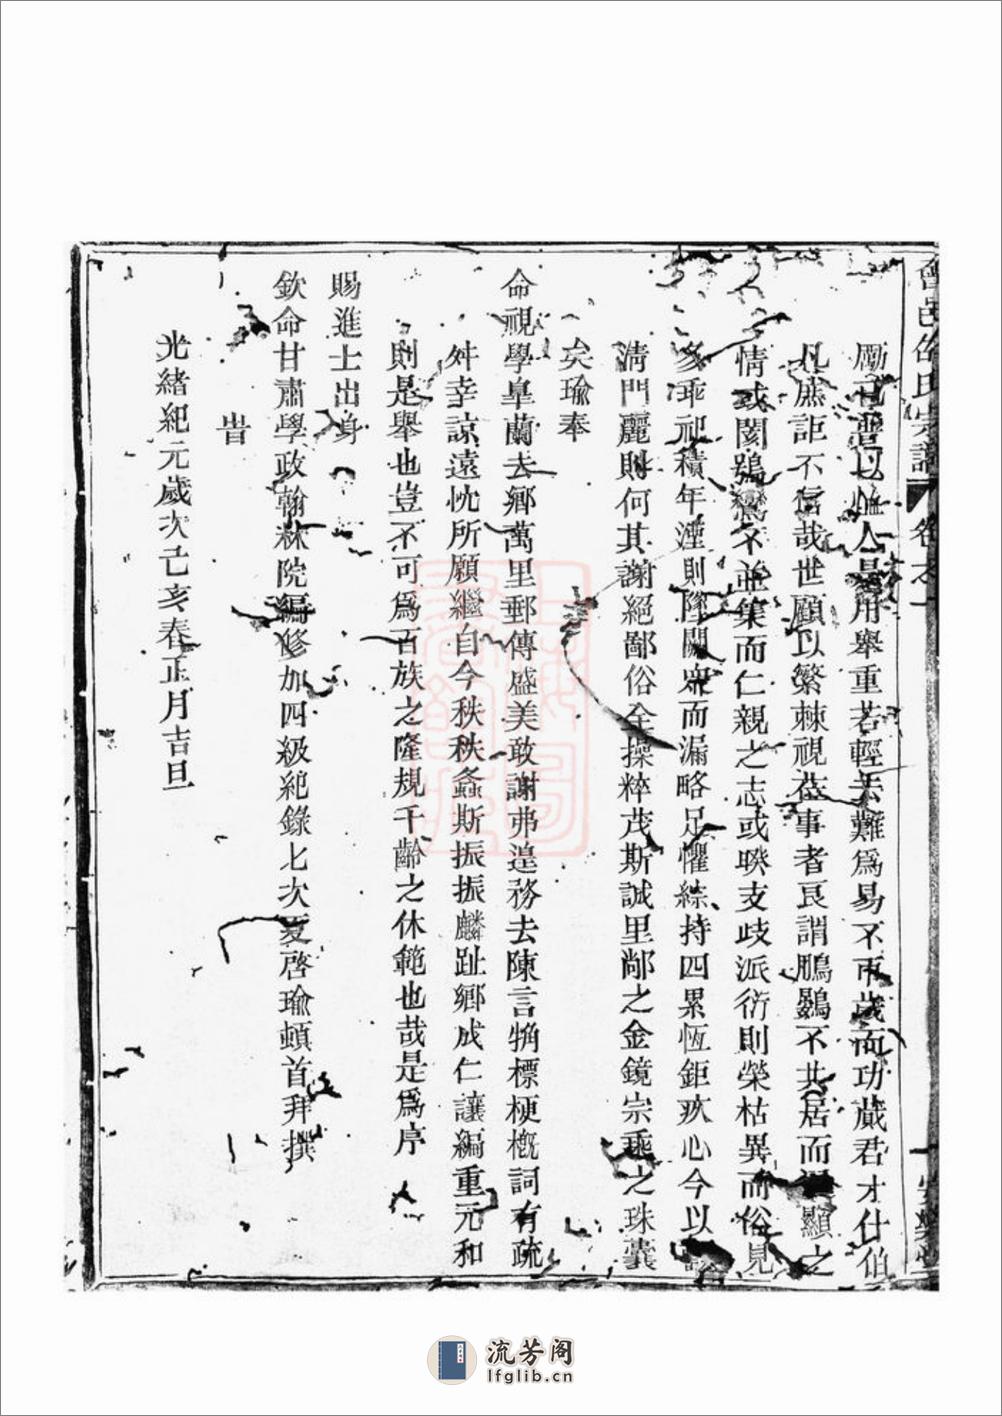 會邑 氏宗譜 卷之
勵 以 人是用舉重若輕 難爲易不兩歲而功蕆君才仕伯
凡庶詎不信哉世顧以繁棘視莅事者良謂鵬鷃不共居而 顯之
情或閡鴳鸞不並集而仁親之志或暌支歧派衍則榮枯異而俗見
多乖祀積年湮則墜闕衆而漏略足懼綜持四累恆鉅疚心今以
清門麗則何其謝絕鄙俗全操粹茂斯誠里鄰之金鏡宗乘之珠囊
矣瑜奉
命視學皐蘭去鄉萬里郵傳盛美敢謝弗遑務去陳言觕標梗槪詞有疏
舛幸諒遠忱所願繼自今秩秩螽斯振振麟趾鄉成仁讓編重元和
則是舉也豈不可爲百族之隆規千齡之休範也哉是爲序
賜進士出身
欽命甘肅學政翰林院編修加四級紀錄七次夏啓瑜頓首拜撰
旹
光緒紀元歲次己亥春正月吉旦
流芳阁
lfglib.cn